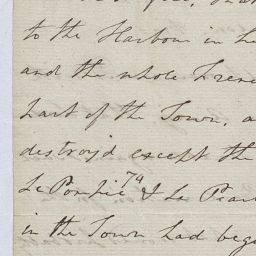 to the Harbour in
and the whole
part of the Town, a
destroy'd except the
Le Pompée 74 & Le
in the Town had beg